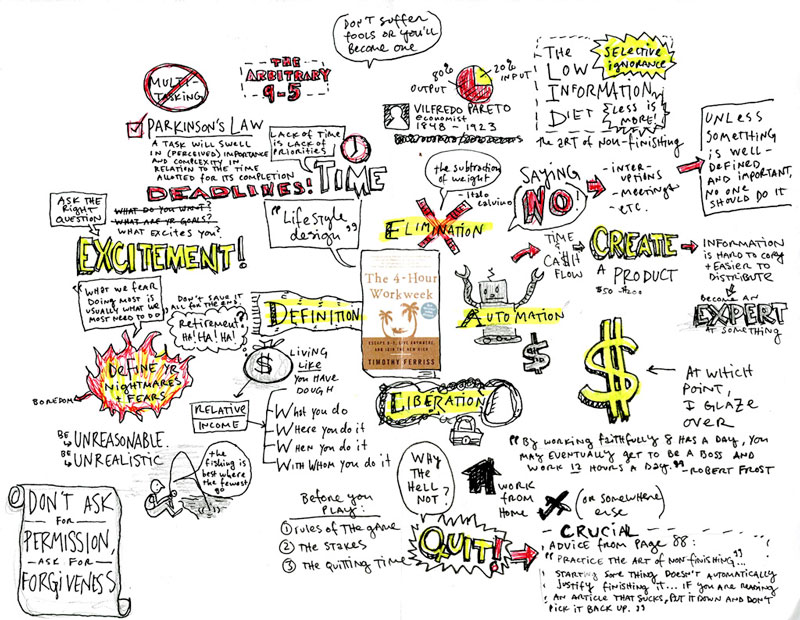 DON'T SUFFER
FOOLS OR YOU'LL
BECOME ONE
MULTI-
TASKING
THE
ARBITRARY
9-5
80%
OUTPUT
20%
INPUT
VILFREDO PARETO
economist
1848 - 1923
THE
LOW
INFORMATION
DIET
SELECTIVE
ignorance
LESS IS
MORE!
THE ART OF NON-FINISHING
PARKINSON'S LAW
A TASK WILL SWELL
IN (PERCEIVED) IMPORTANCE
AND COMPLEXITY IN
RELATION TO THE TIME
ALLOTTED FOR ITS COMPLETION
DEADLINES!
LACK OF TIME
IS LACK OF
PRIORITIES
TIME
the subtraction
of weight
- Italo
calvino
SAYING
NO!
- INTER-
UPTIONS
- meetings
- ETC.
UNLESS
SOMETHING
IS WELL-
DEFINED
AND IMPORTANT,
NO ONE
SHOULD DO IT
ASK THE
RIGHT
QUESTION
WHAT DO YOU WANT?
WHAT ARE YR GOALS?
WHAT EXCITES YOU?
EXCITEMENT!
"LIFESTYLE
design"
ELIMINATION
TIME
&
CA$H
FLOW
CREATE
A PRODUCT
$50-$200
INFORMATION
IS HARD TO COPY
+ EASIER TO
DISTRIBUTE
become AN
EXPERT
AT SOMETHING
"WHAT WE FEAR
DOING MOST IS
USUALLY WHAT WE
MOST NEED TO DO"
DON'T SAVE IT
ALL FOR THE END.
Retirement?
HA! HA! HA!
DEFINITION
The 4-Hour
Workweek
ESCAPE 9-5, LIVE ANYWHERE,
AND JOIN THE NEW RICH
TIMOTHY FERRISS
AUTOMATION
$
$
AT WHICH
POINT,
I GLAZE
OVER
DEFINE YR
NIGHTMARES
+ FEARS
BOREDOM
BE UNREASONABLE.
BE UNREALISTIC
$
LIVING
LIKE
YOU HAVE
DOUGH
RELATIVE
INCOME
WHAT YOU DO
WHERE YOU DO IT
WHEN YOU DO IT
WITH WHOM YOU DO IT
LIBERATION
"BY WORKING FAITHFULLY 8 HRS A DAY, YOU
MAY EVENTUALLY GET TO BE A BOSS AND
WORK 12 HOURS A DAY." - ROBERT FROST
the
fishing is
best where
the fewest
go
WHY
THE
HELL
NOT?
WORK
FROM
HOME
(OR SOMEWHERE
else)
DON'T ASK
FOR
PERMISSION,
ASK FOR
FORGIVENESS
Before you
PLAY:
1 rules OF THE GAME
2 THE STAKES
3 THE QUITTING TIME
QUIT!
CRUCIAL
ADVICE FROM PAGE 88:
"PRACTICE THE ART OF NON-FINISHING..."
STARTING SOMETHING DOESN'T AUTOMATICALLY
JUSTIFY FINISHING IT... IF YOU ARE READING
AN ARTICLE THAT SUCKS, PUT IT DOWN AND DON'T
PICK IT BACK UP."